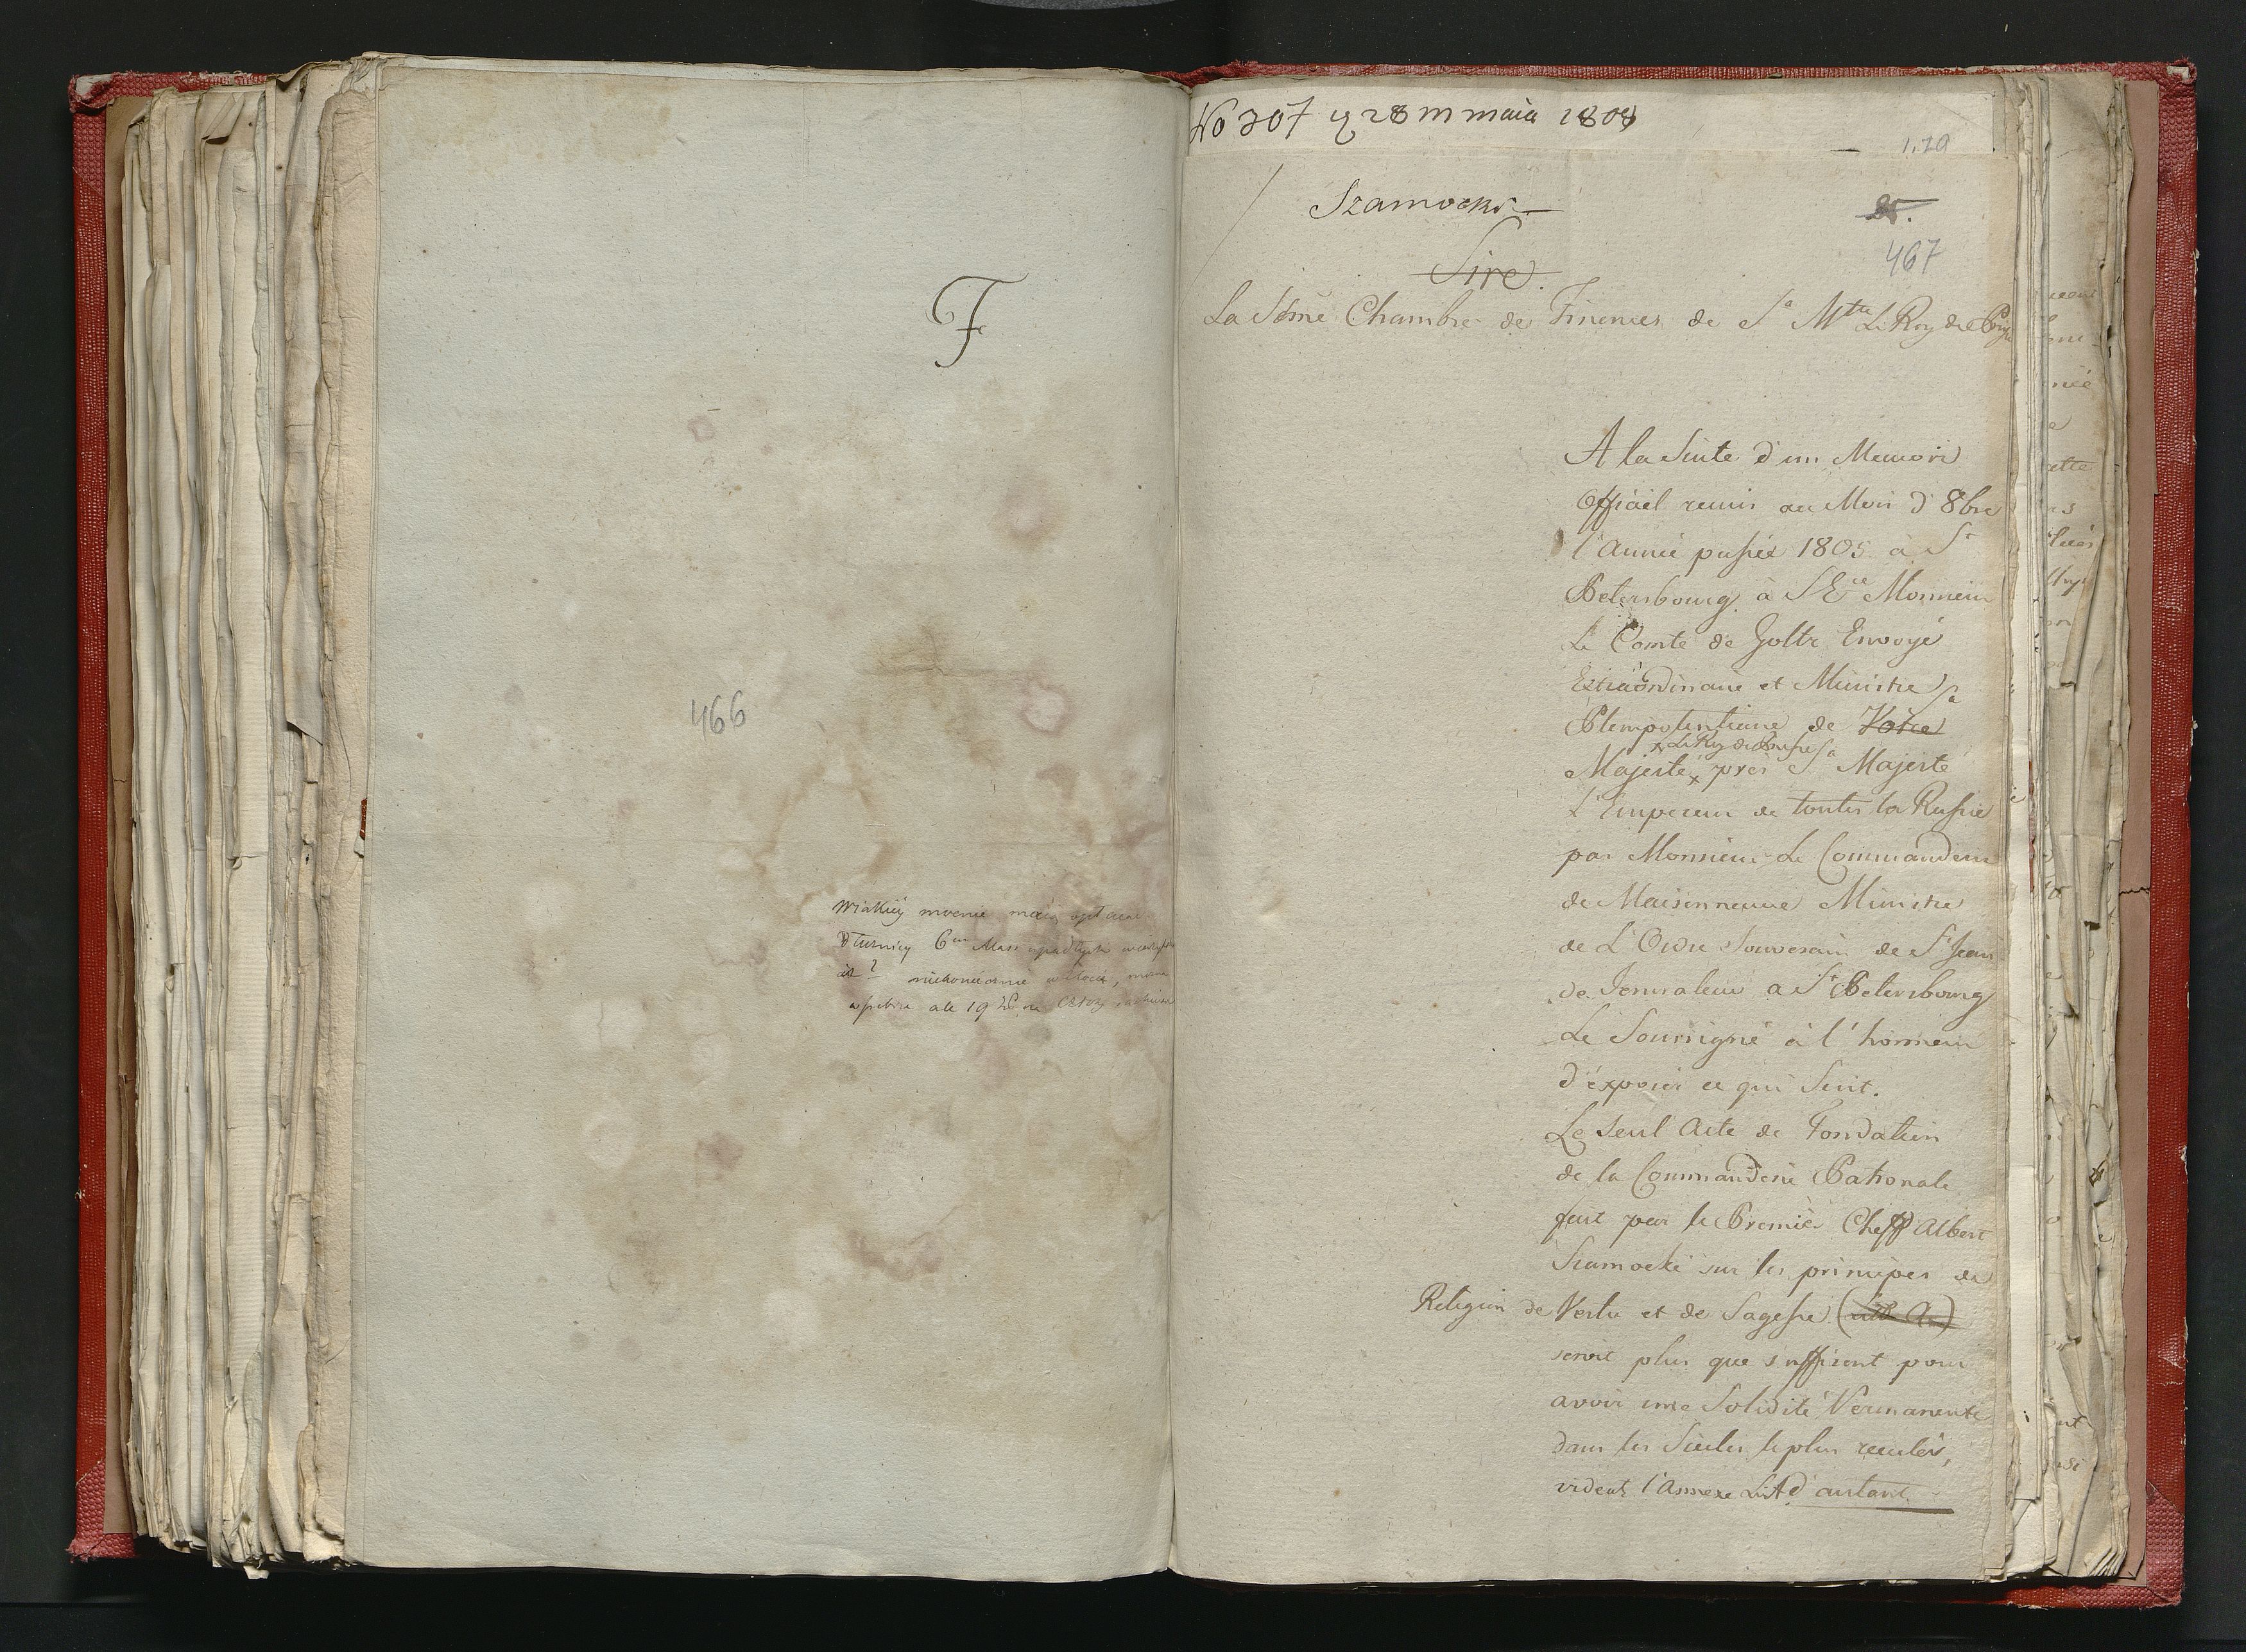 F
466
No 307 28 m maia 1808
1.70
Szamocki
85.
Sire.
467
La Sême Chambre de Finences de Sa Mtée Le Roy de
A la Suite d'un Memoire
Officiel remis au Mois d'8bre
l'Année passée 1805 à St
Petersbourg à S Ece Monsieur
Le Comte de Goltz Envoyé
Extraordinaire et Ministre
Sa
Plenipotentiaire de Votre
x Le Roy de Prusse
Majesté x près Sa Majesté
L'Empereur de toutes la Russie
par Monsieur Le Commandeur
de Maisonneuve Ministre
de L'Ordre Souverain de St Jean
de Jerusalem a St Petersbourg
Le Soussigné à l'honneur
d'exposer ce qui Suit.
Le Seul Acte de Fondation
de la Commanderie Patronale
fait par le Premier Cheff Albert
Szamocki sur les principes de
Religion de Vertu et de Sagesse (Lit A)
seroit plus que suffisent pour
avoir une Solidité Permanente
dans les Siecles le plus reculés,
vident l'Annexe Lit A d'autant